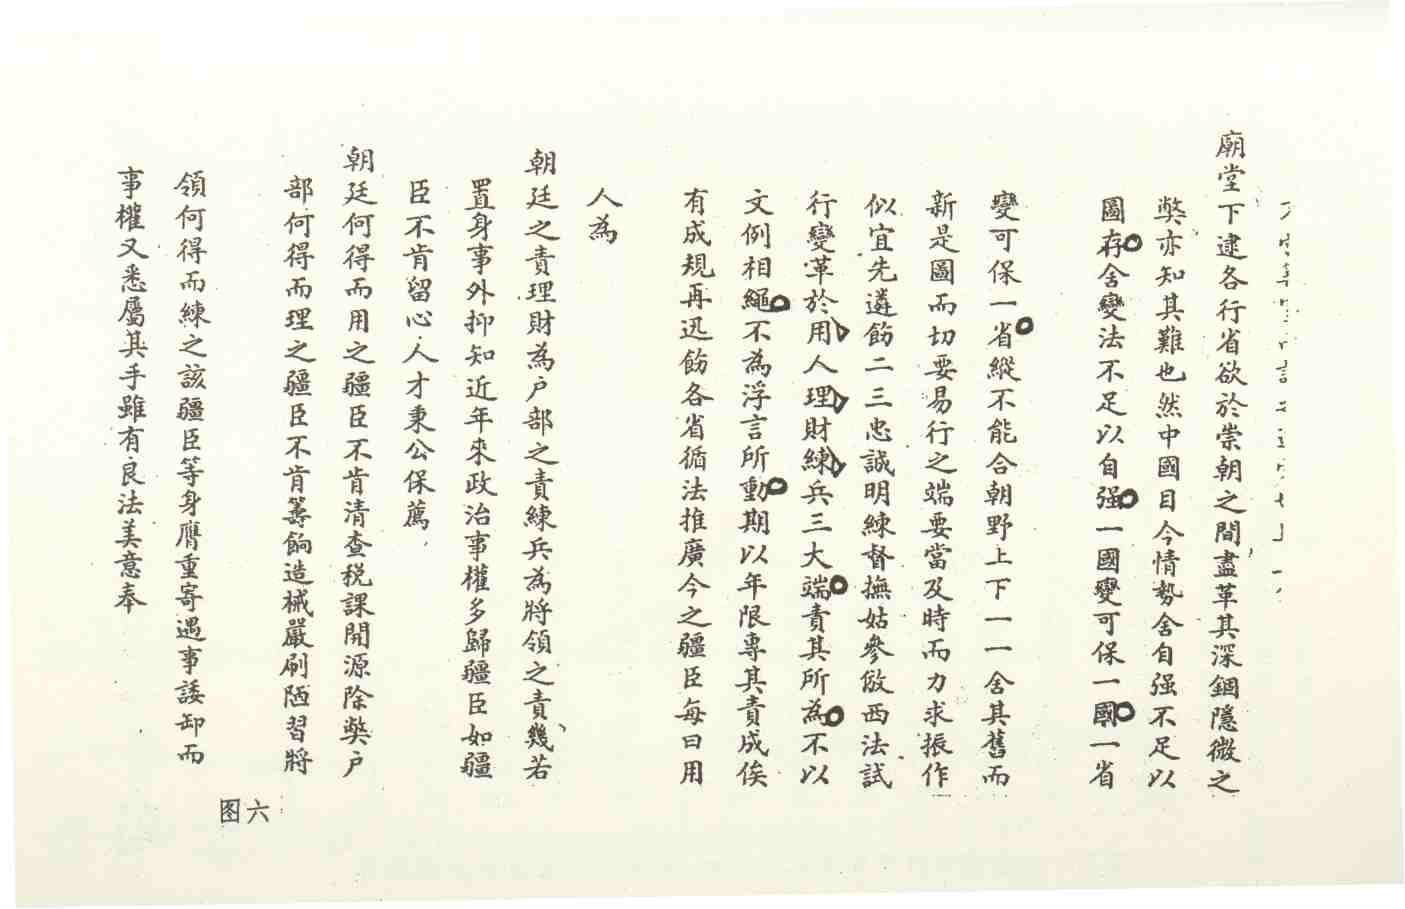 廟堂下逮各行省欲於崇朝之間盡革其深錮隱微之
弊亦知其難也然中國目今情勢舍自强不足以
圖存舍變法不足以自强一國變可保一國一省
變可保一省縱不能合朝野上下一一舍其舊而
新是圖而切要易行之端要當及時而力求振作
似宜先遴飭二三忠誠明練督撫姑參倣西法試
行變革於用人理財練兵三大端責其所為不以
文例相繩不為浮言所動期以年限專其責成俟
有成規再迅飭各省循法推廣今之疆臣每曰用
人為
朝廷之責理財為户部之責練兵為將領之責幾若
置身事外抑知近年來政治事權多歸疆臣如疆
臣不肯留心人才秉公保薦
朝廷何得而用之疆臣不肯清查税課開源除弊户
部何得而理之疆臣不肯籌餉造械嚴刷陋習將
領何得而練之該疆臣等身膺重寄遇事諉卸而
事權又悉屬其手雖有良法美意奉
图六